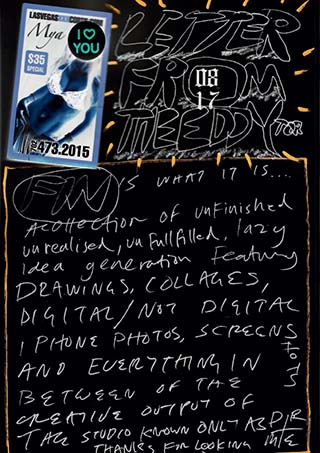 LASVEGAS
Mya
I ♡ YOU
$35
SPECIAL
473.2015
LETTER
FROM
THEEDDYTOR
08
17
FIN'S WHAT IT IS....
A collection of unfinished
unrealised, unfullfilled, lazy
idea generation featuring
DRAWINGS, COLLAGES,
DIGITAL/NOT DIGITAL
IPHONE PHOTOS, SCREENSHOTS
AND EVERYTHING IN
BETWEEN OF THE
CREATIVE OUTPUT OF
THE STUDIO KNOWN ONLY AS
THANKS FOR LOOKING